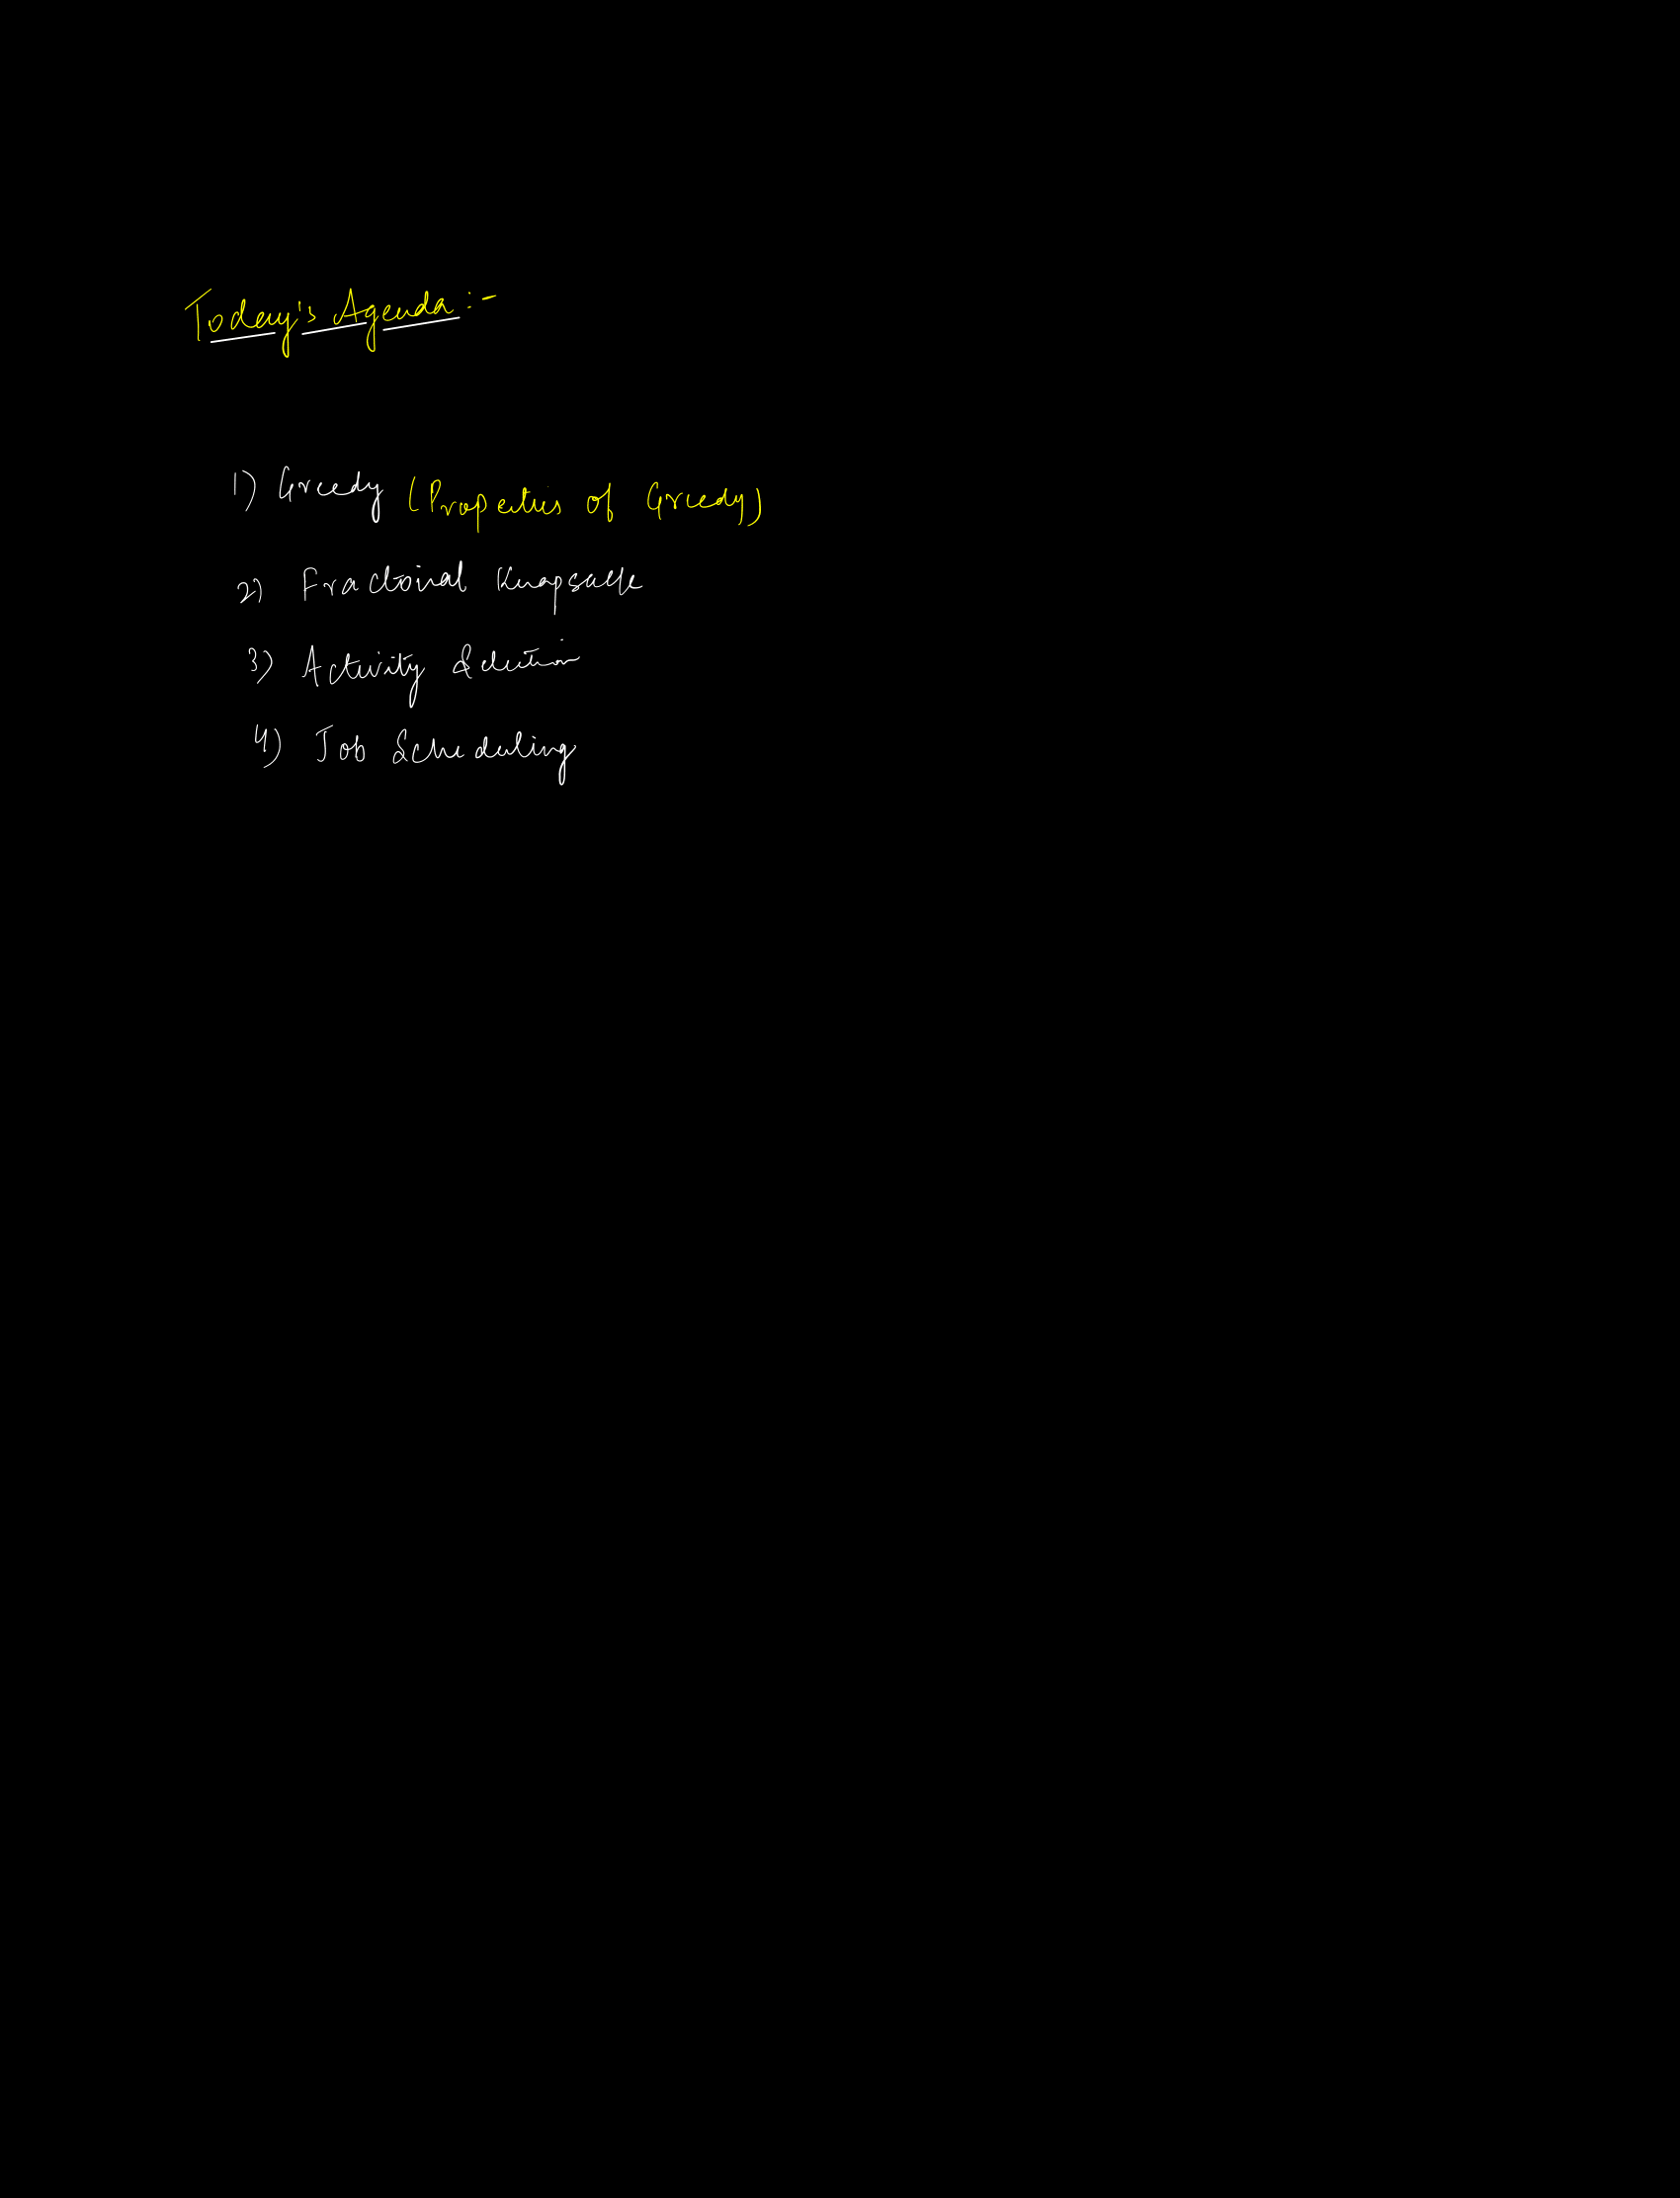 Today's Agenda:-
1) Greedy (Properties of Greedy)
2) Fractoinal Knapsack
3) Activity Selection
4) Job Scheduling